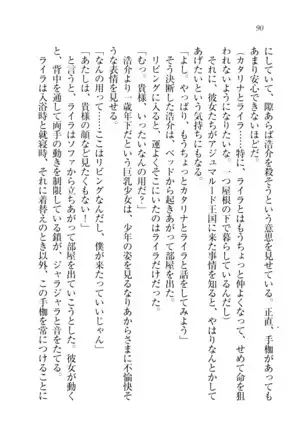 90
にしていて、隙あらば浩介を殺そうという意思を見せている。正直、手枷があっても
あまり安心できないほどだ。
(カタリナとライラ……特に、ライラとはもうちょっと仲よくなって、せめて命を狙
われないようにしないと。一つ屋根の下で暮らしているんだし)
それに、彼女たちがアジュマルード王国に来た事情を知ると、やはりなんとかして
あげたいという気持ちにもなる。
「よし。やっぱり、もうちょっとカタリナとライラと話をしてみよう」
そう決断した浩介は、ベッドから起きあがって部屋を出た。
リビングに入ると、運よくそこにいたのはライラだけだった。
「むっ。貴様、いったいなんの用だ？」
浩介より一歳年下だという巨乳少女は、少年の姿を見るなりあからさまに不愉快そ
うな表情を見せる。
「なんの用って……ここはリビングなんだし、僕が来たっていいじゃん」
「あたしは、貴様の顔など見たくもない！」
と言うと、ライラはソファから立ちあがって部屋を出ていこうとした。彼女が動く
と、背中を通して両手の動きを制限している鎖が、ジャラジャラと音をたてる。
ライラは入浴時と就寝時、それに着替えのとき以外、この手枷を常につけることに